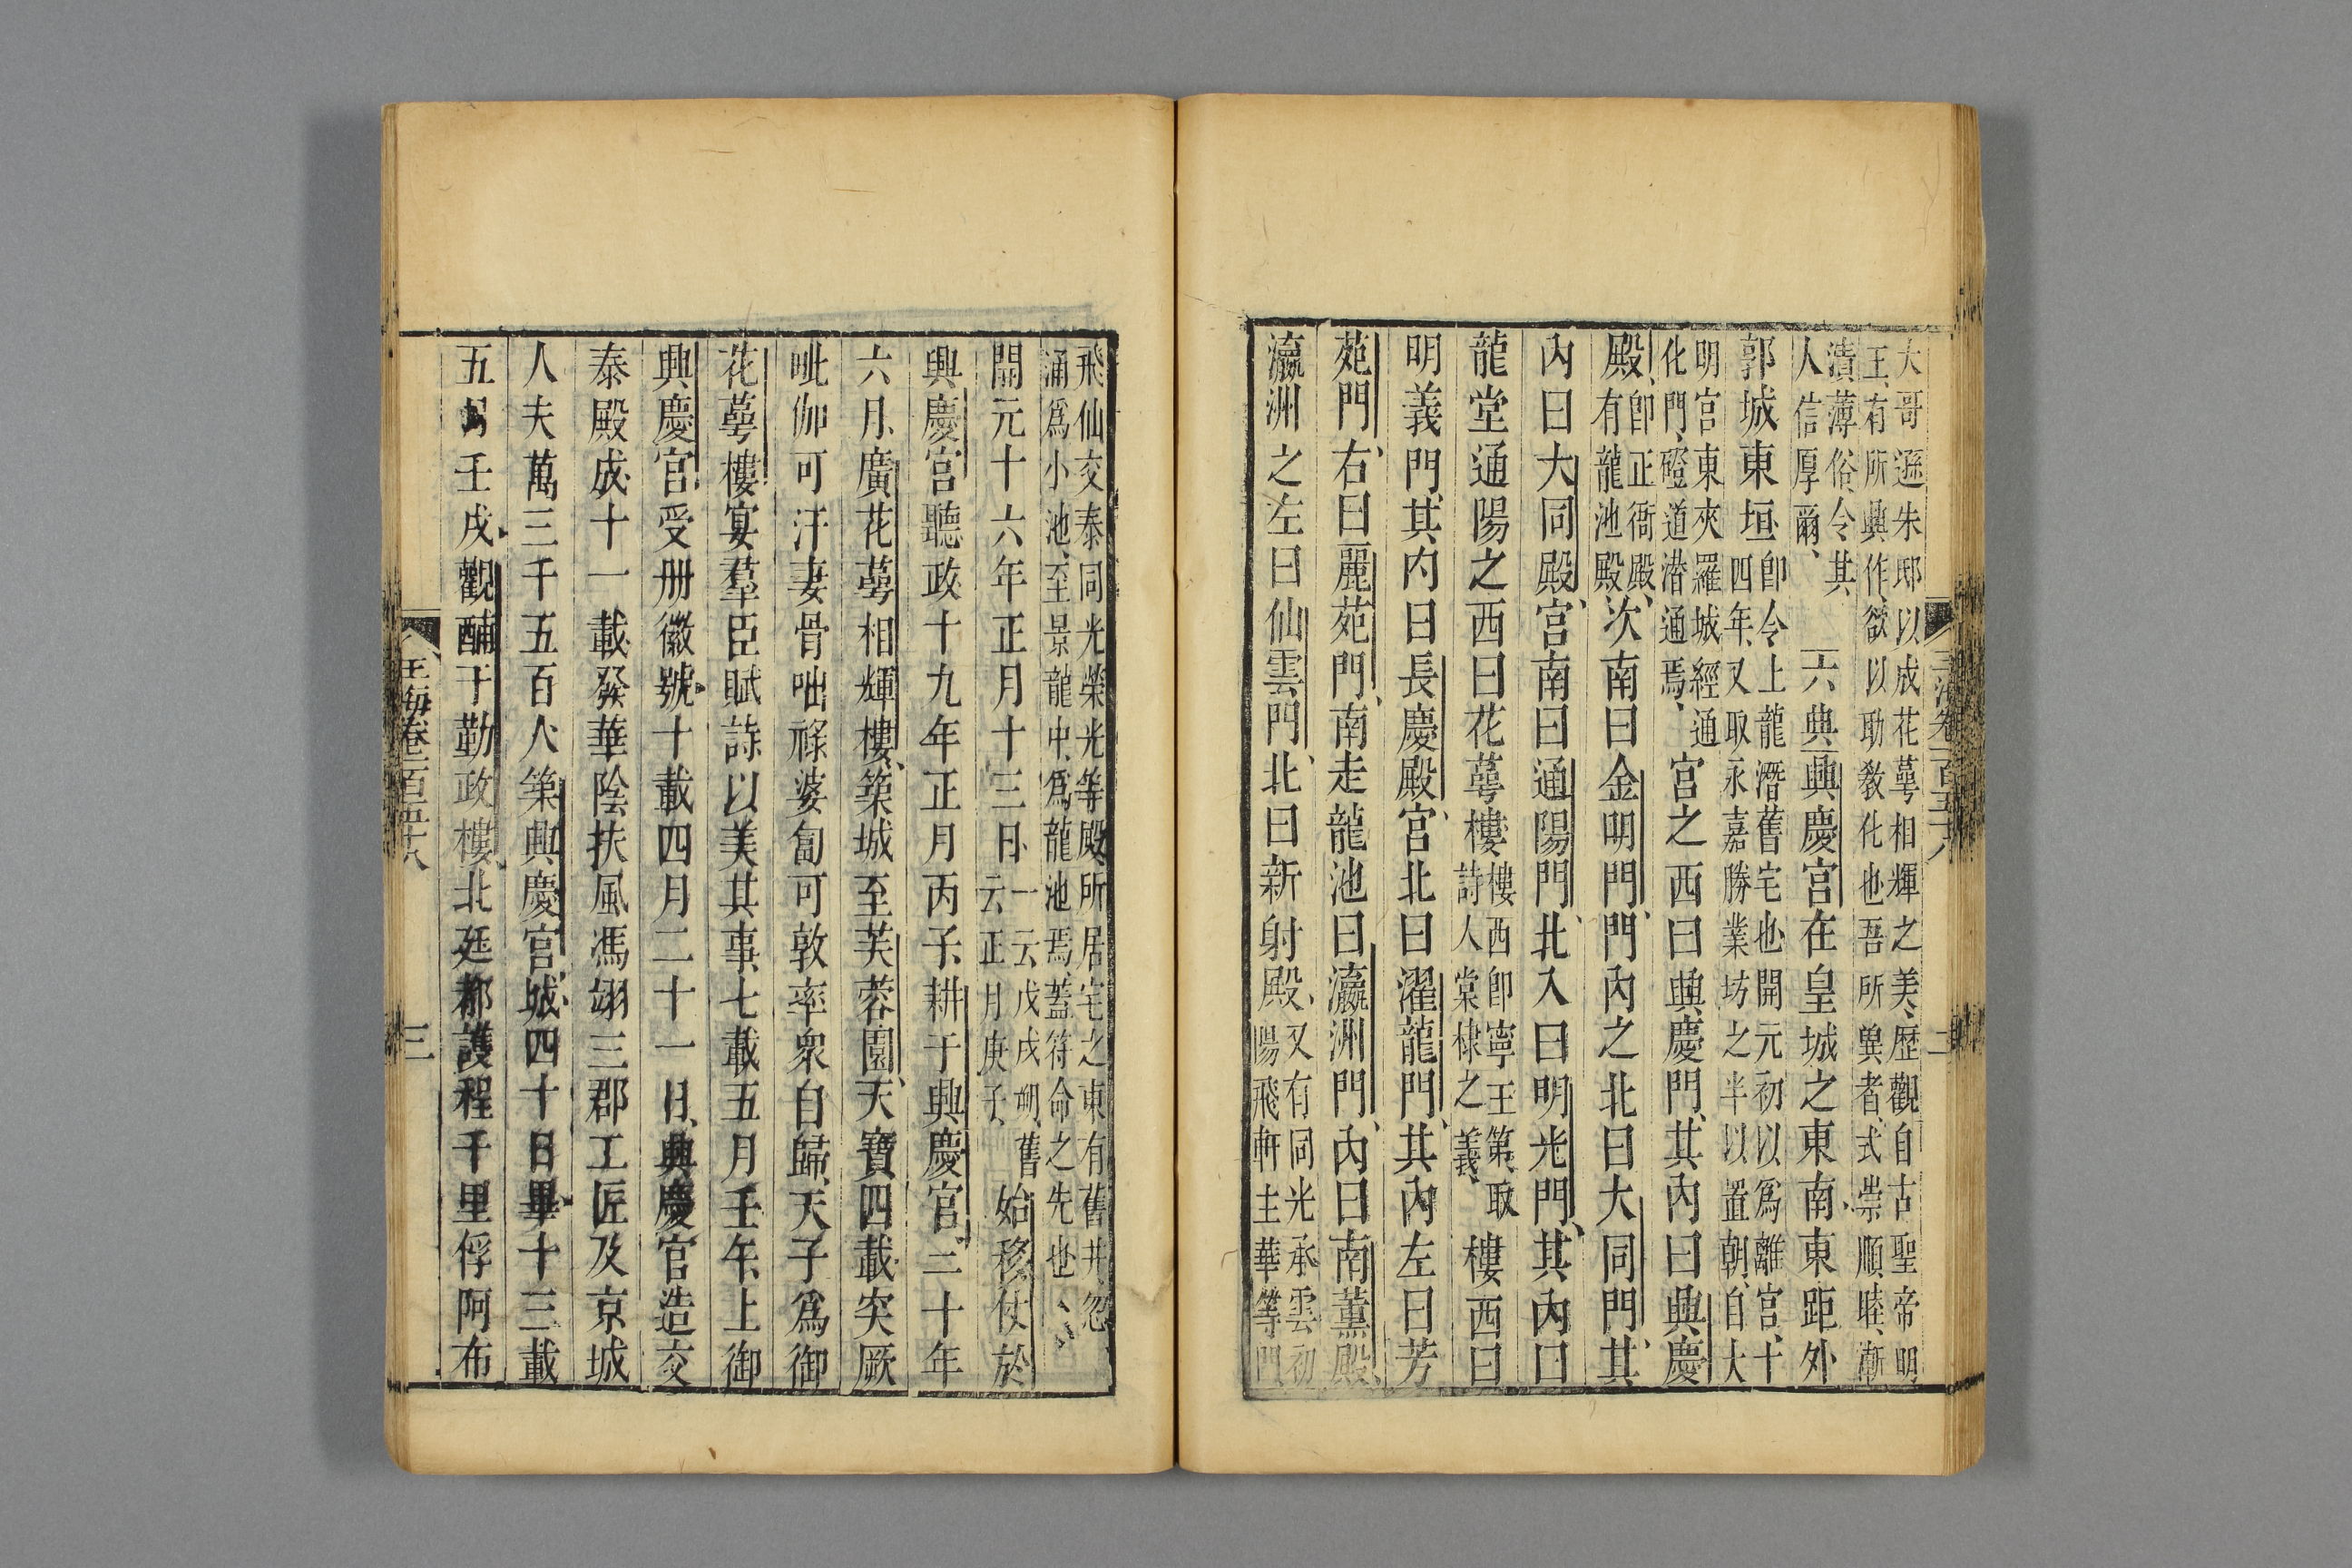 大哥遜朱邸以成花萼相輝之美、歷觀自古聖帝明
王、有所興作、欲以助敎化也吾所冀者、式崇順睦、漸
漬薄俗、令其
人信厚爾、
六典興慶宮在皇城之東南、南東距外
郭城東垣、
卽今上龍潛舊宅也、開元初以爲離宮、十
四年、又取永嘉勝業坊之半以置朝、自大
明宮東夾羅城經通
化門、磴道潜通焉、
宮之西曰興慶門、其內曰興慶
殿、
卽正衙殿、
有龍池殿
次南曰金明門、門內之北曰大同門、其
內曰大同殿、宮南曰通陽門、北入曰明光門、其內曰
龍堂通陽之西曰花萼樓、
樓西卽寧王第、取
詩人棠棣之義、
樓西曰
明義門、其內曰長慶殿、宮北曰濯龍門、其內左曰芳
苑門、右曰麗苑門、南走龍池曰瀛洲門、內曰南薰殿、
瀛洲之左曰仙雲門、北曰新射殿、
又有同光承雲初
陽飛軒主華等門
玉海卷一百五十八
飛仙交泰同光榮光等殿、所居宅之東有舊井忽
涌爲小池、至景龍中、爲龍池焉、蓋符命之先也、
開元十六年正月十三日、
一云戊戌朔、舊
云正月庚子、
始移仗於
興慶宮聽政十九年正月丙子、耕于興慶宮、二十年
六月、廣花萼相輝樓、築城至芙蓉園、天寶四載突厥
毗伽可汗妻骨咄祿婆匐可敦率衆自歸、天子爲御
花萼樓宴羣臣賦詩以美其事、七載五月壬午、上御
興慶宮受册徽號、十載四月二十一日、興慶宮造交
泰殿成、十一載發華陰扶風馮翊三郡工匠及京城
人夫萬三千五百人築興慶宮城、四十日畢、十三載
五月壬戌、觀酺于勤政樓、北廷都護程千里俘阿布
玉海卷一百五十八
三